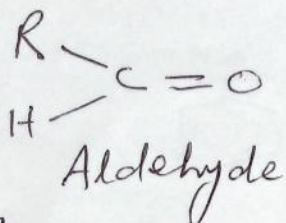 R
C = O
H
Aldehyde